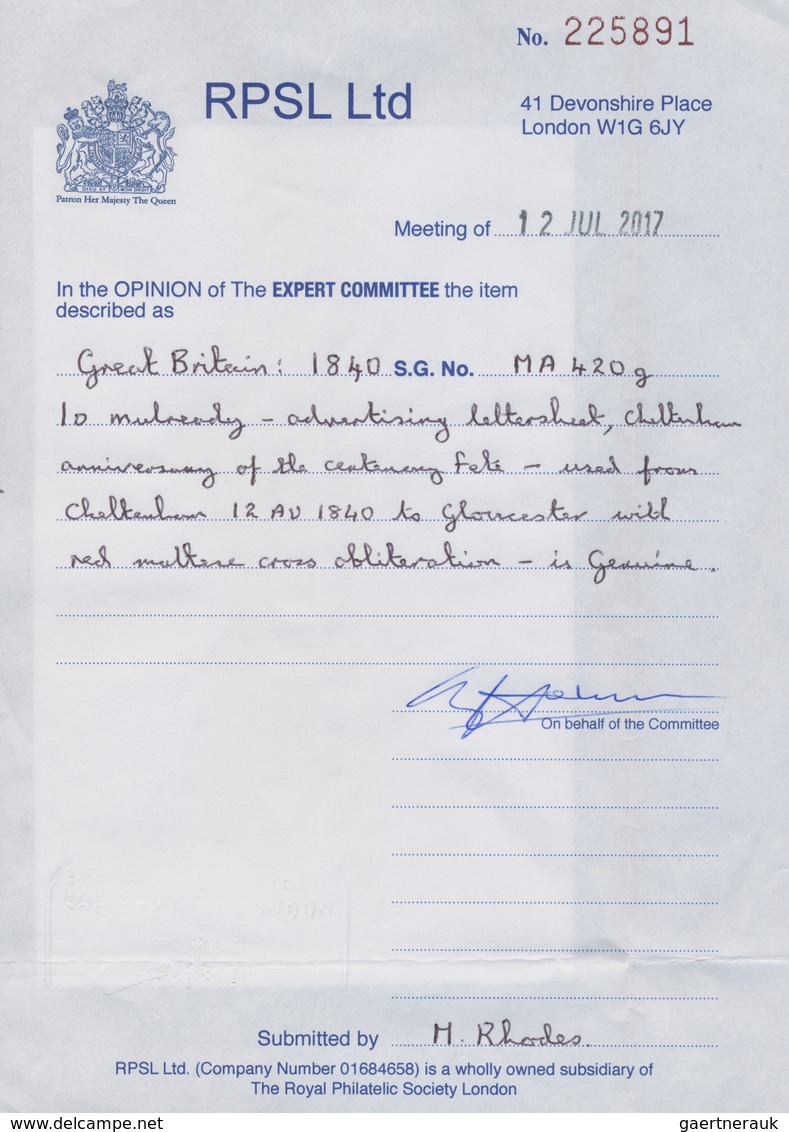 No. 225891
RPSL Ltd
41 Devonshire Place
London W1G 6JY
DIEU ET MON DROIT
Patron Her Majesty The Queen
Meeting of 12 JUL 2017
In the OPINION of The EXPERT COMMITTEE the item
described as
Great Britain: 1840 S.G. No. MA 420g
1D mulready - advertising lettersheet, Cheltenham
anniversary of the centenary Fete - used from
Cheltenham 12 AU 1840 to Gloucester with
red maltese cross obliteration - is Genuine.
On behalf of the Committee
Submitted by M. Rhodes.
RPSL Ltd. (Company Number 01684658) is a wholly owned subsidiary of
The Royal Philatelic Society London
delcampe.net
gaertnerauk